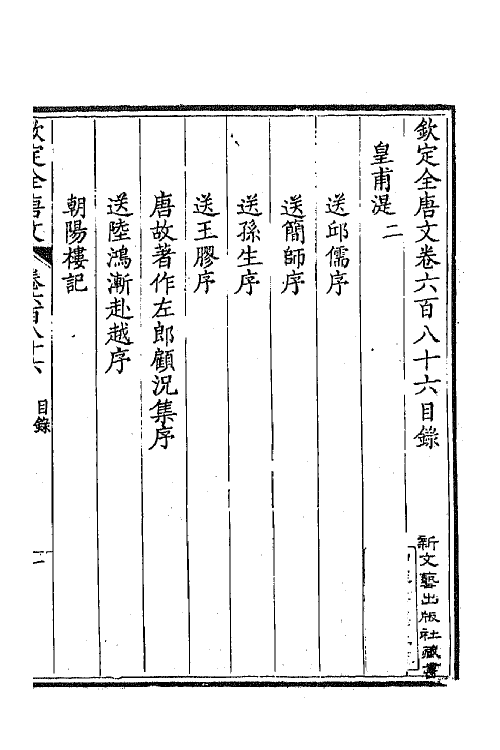 欽定全唐文卷六百八十六目錄
皇甫湜 二
送邱儒序
送簡師序
送孫生序
送王膠序
唐故著作左郎顧況集序
送陸鴻漸赴越序
朝陽樓記
欽定全唐文 卷六百八十六 目錄 一
新文藝出版社藏書